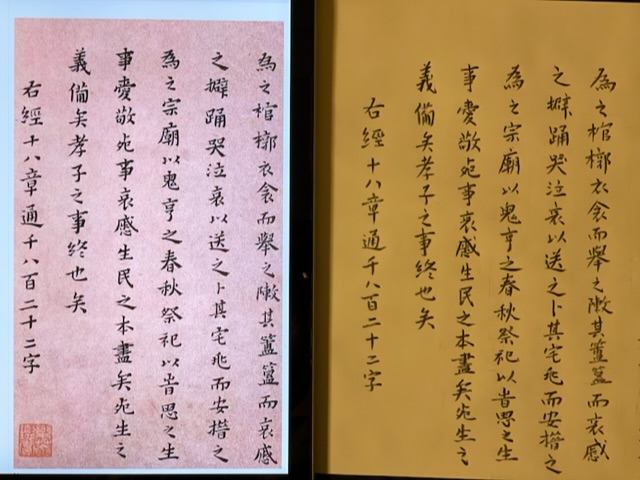 為之棺槨衣衾而舉之敶其簠簋而哀感
之擗踊哭泣哀以送之卜其宅兆而安措之
為之宗廟以鬼亨之春秋祭祀以旹思之生
事愛敬死事哀感生民之本盡矣死生之
義備矣孝子之事終也矣
右經十八章通千八百二十二字
為之棺槨衣衾而舉之敶其簠簋而哀感
之擗踊哭泣哀以送之卜其宅兆而安措之
為之宗廟以鬼亨之春秋祭祀以旹思之生
事愛敬死事哀感生民之本盡矣死生之
義備矣孝子之事終也矣
右經十八章通千八百二十二字